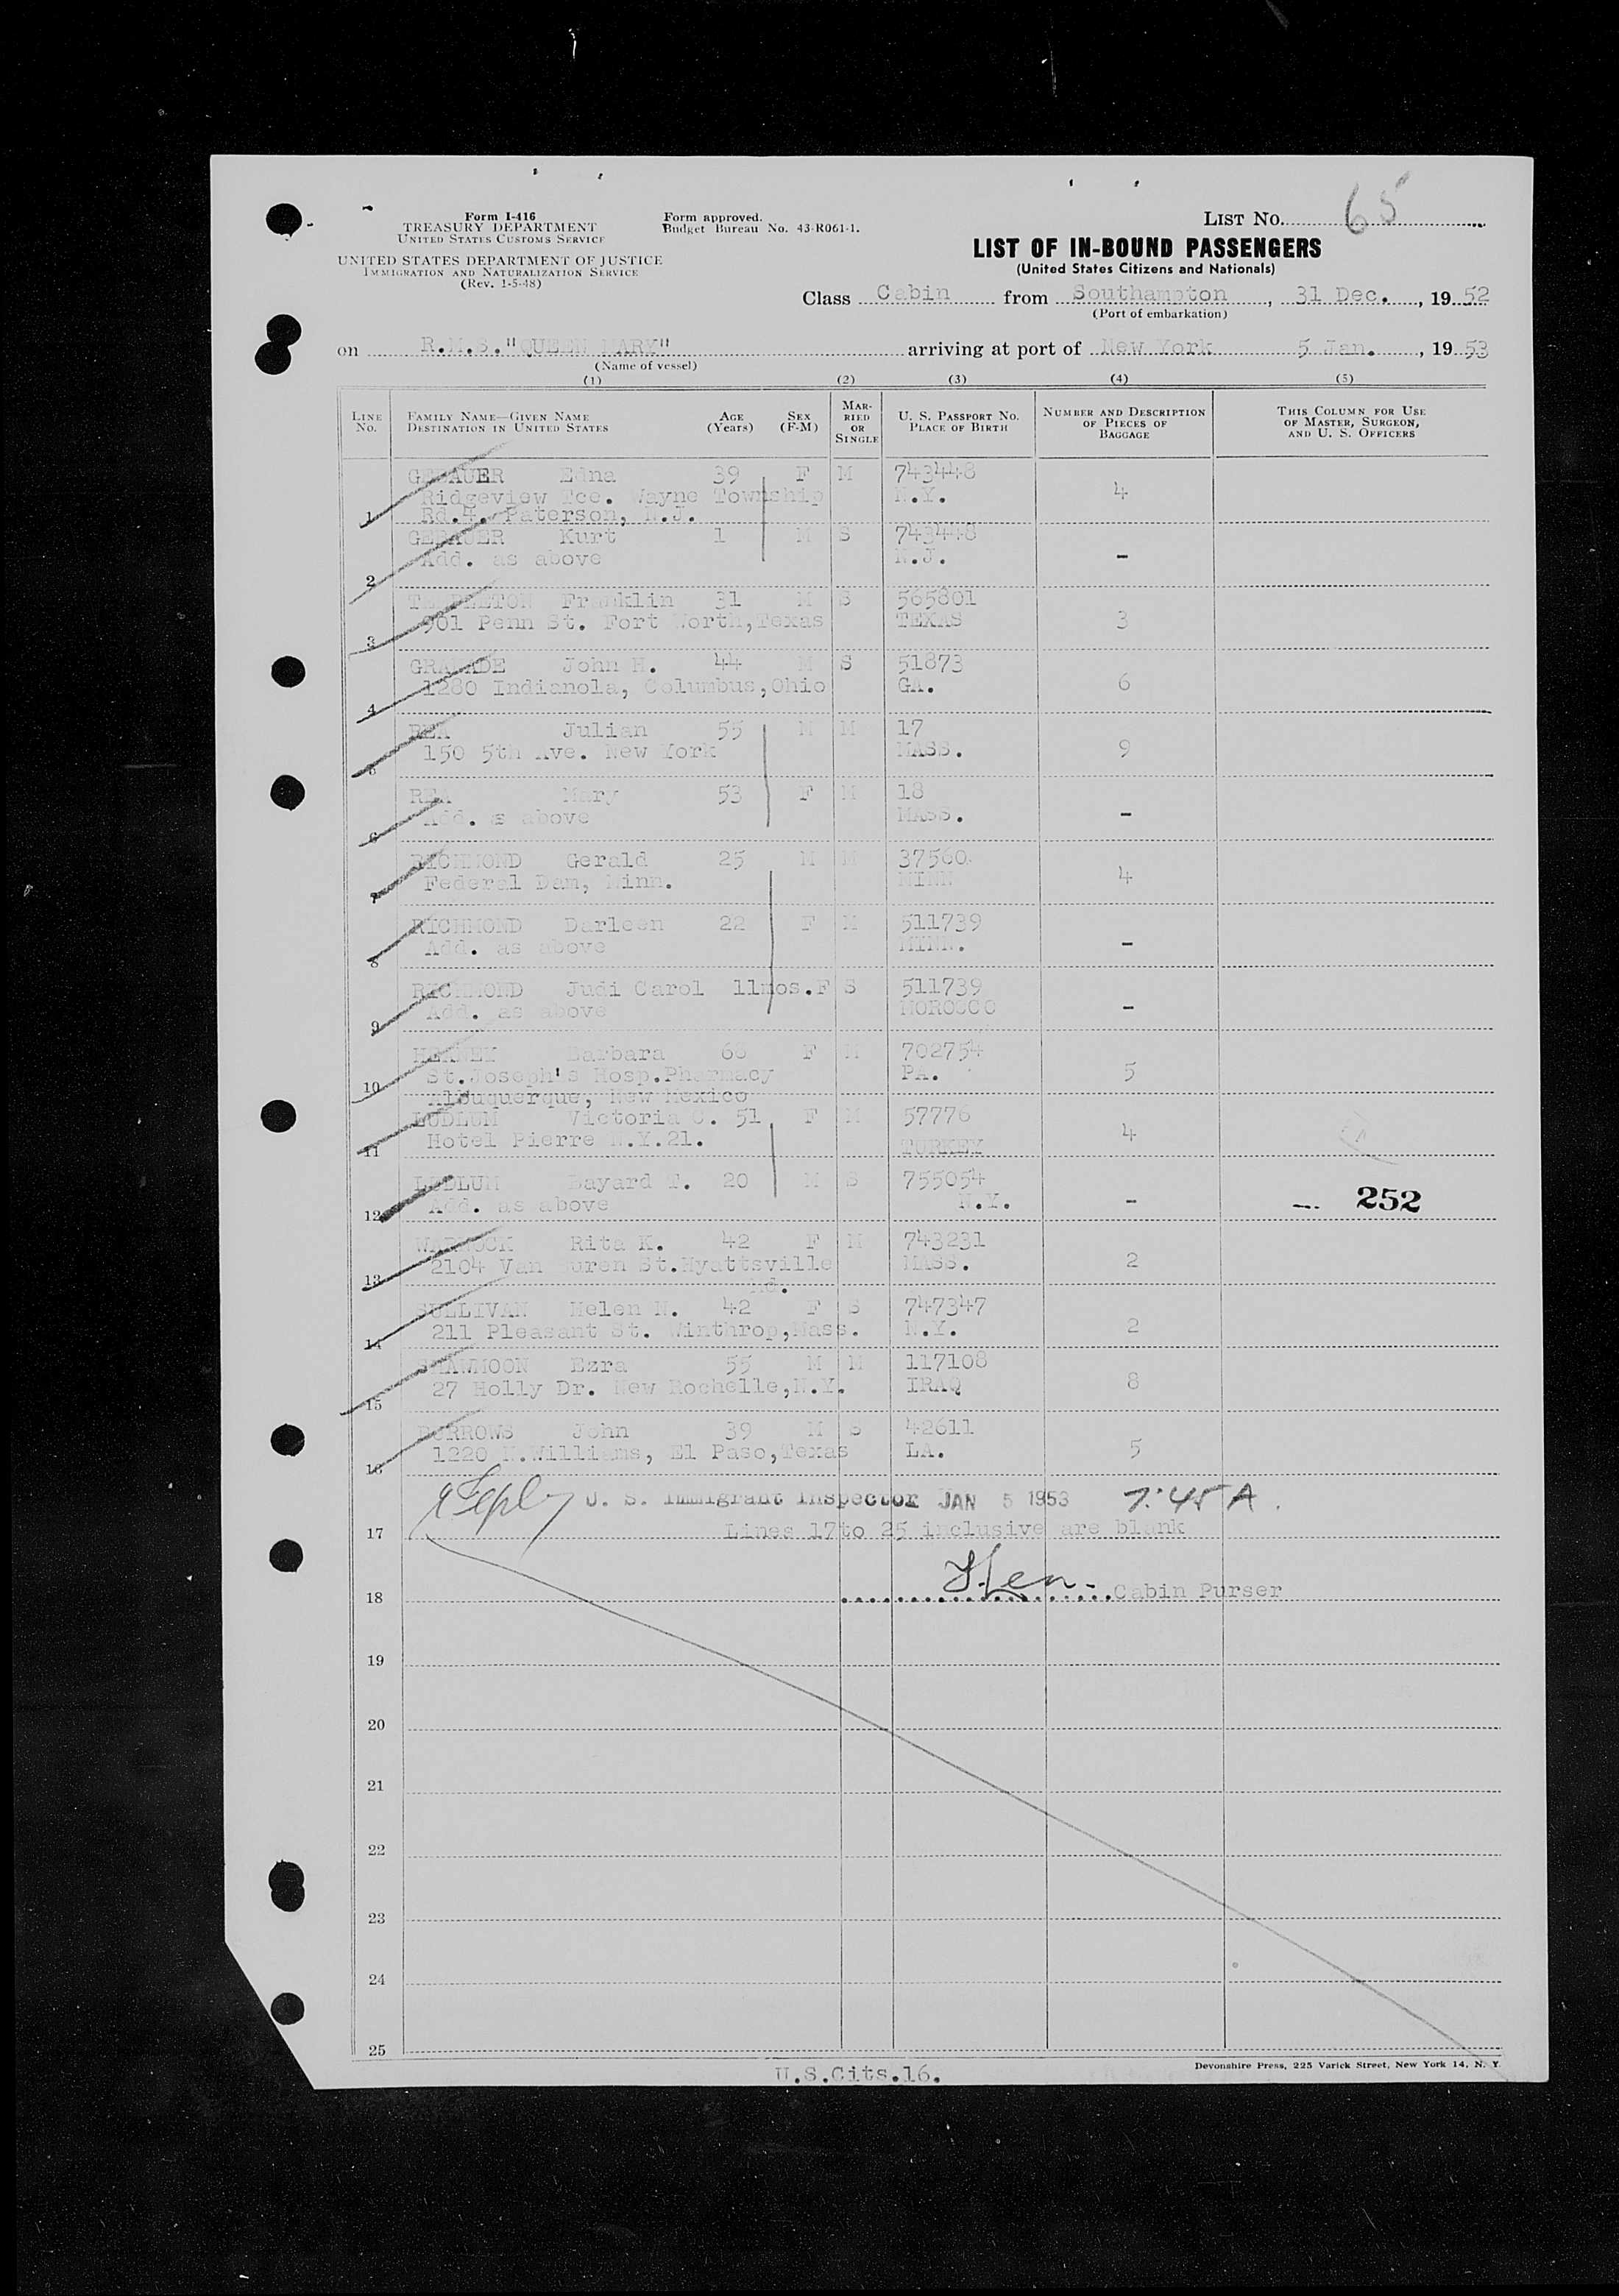 Form I-416
TREASURY DEPARTMENT
UNITED STATES CUSTOMS SERVICE
UNITED STATES DEPARTMENT OF JUSTICE
IMMIGRATION AND NATURALIZATION SERVICE
(Rev. 1-5-48)
Form approved.
Budget Bureau No. 43-R061-1.
LIST NO. 65
LIST OF IN-BOUND PASSENGERS
(United States Citizens and Nationals)
Class Cabin from Southampton, 31 Dec., 1952
(Port of embarkation)
on R.M.S."QUEEN MARY" arriving at port of New York 5 Jan., 1953
(Name of vessel)
(1) (2) (3) (4) (5)
LINE No. FAMILY NAME—GIVEN NAME DESTINATION IN UNITED STATES AGE (Years) SEX (F-M) MARRIED OR SINGLE U. S. PASSPORT NO. PLACE OF BIRTH NUMBER AND DESCRIPTION OF PIECES OF BAGGAGE THIS COLUMN FOR USE OF MASTER, SURGEON, AND U. S. OFFICERS
GEBAUER Edna 39 F M 743448
Ridgeview Tce. Wayne Township N.Y. 4
1 Rd.4. Paterson, N.J.
GEBAUER Kurt 1 M S 743448
Add. as above N.J. -
2
Franklin 31 M S 565801
901 Penn St. Fort Worth, Texas TEXAS 3
3
John H. 44 M S 51873
1280 Indianola, Columbus, Ohio GA. 6
4
REA Julian 55 M M 17
150 5th Ave. New York MASS. 9
5
REA Mary 53 F M 18
Add. as above MASS. -
6
RICHMOND Gerald 25 M M 37560
Federal Dam, Minn. MINN 4
7
RICHMOND Darleen 22 F M 511739
Add. as above MINN. -
8
RICHMOND Judi Carol 11mos. F S 511739
Add. as above MOROCCO -
9
Barbara F M 702754
St.Joseph's Hosp.Pharmacy PA. 5
10
Albuquerque, New Mexico
LUDLUM Victoria 51 F M 57776
Hotel Pierre N.Y.21. TURKEY 4
11
LUDLUM Bayard T. 20 M S 755054
Add. as above N.Y. - -- 252
12
WARNOCK Rita K. 42 F M 743231
2104 Van Buren St.Hyattsville MASS. 2
13 Md.
SULLIVAN Helen M. 42 F S 747347
211 Pleasant St. Winthrop,Mass. N.Y. 2
14
SHAWMOON Ezra 55 M M 117108
27 Holly Dr. New Rochelle,N.Y. IRAQ 8
15
John 39 M S 42611
1220 N.Williams, El Paso,Texas LA. 5
16
U. S. Immigrant Inspector JAN 5 1953 7:45 A.
17 Lines 17 to 25 inclusive are blank
18 Cabin Purser
19
20
21
22
23
24
25
U.S.Cits.16.
Devonshire Press, 225 Varick Street, New York 14, N. Y.